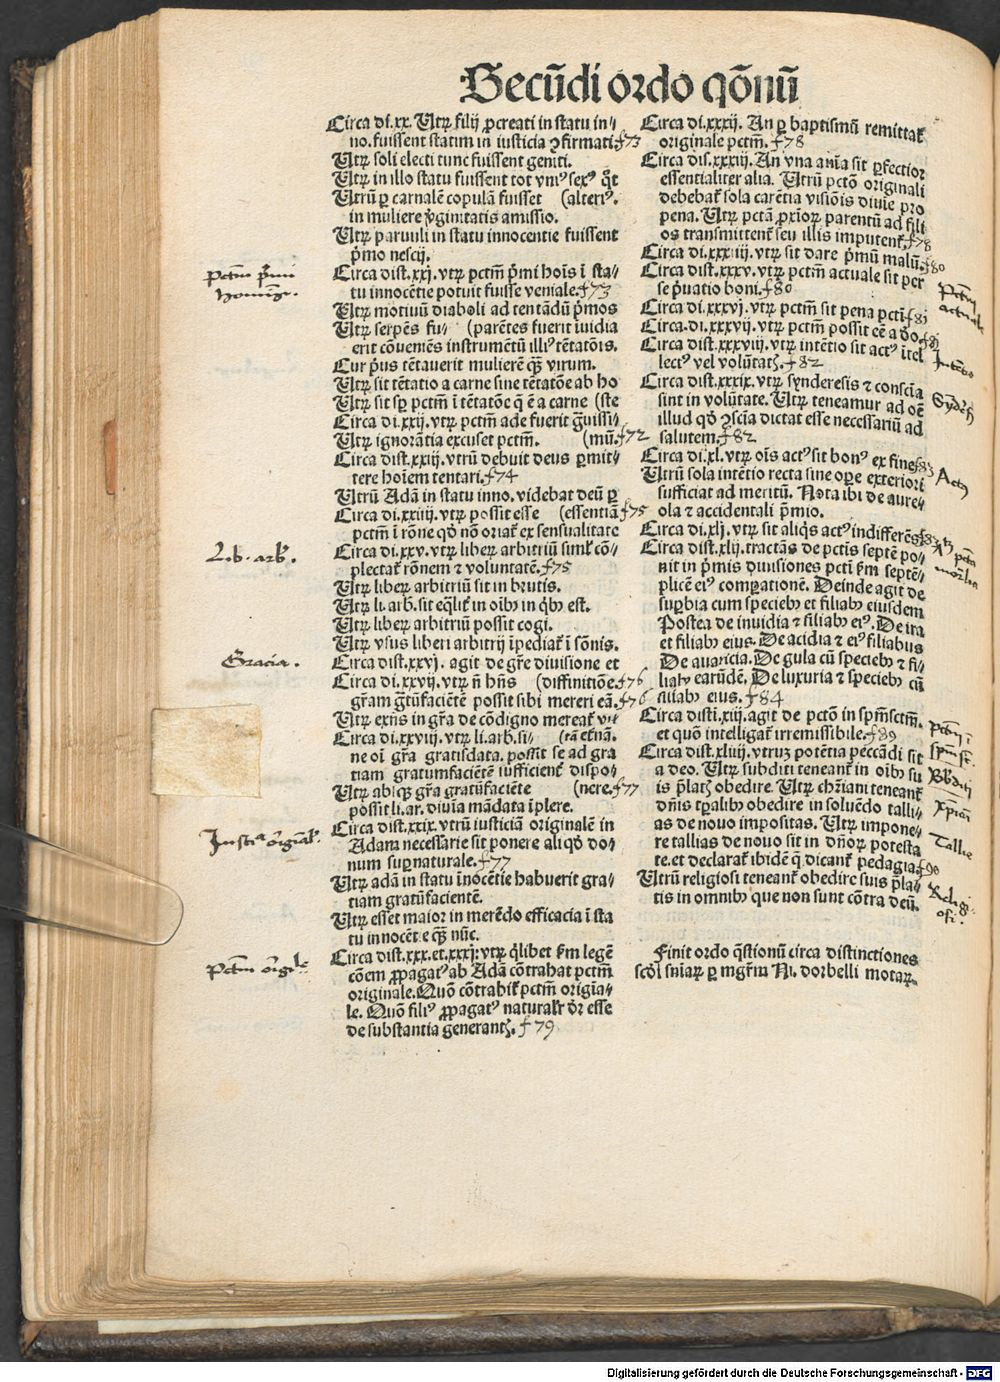 Secūdi ordo qōnū
Circa di. xx. Utrꝝ filij ꝓcreati in statu in⸗
no. fuissent statim in iusticia ꝯfirmati. f 73
Utrꝝ soli electi tunc fuissent geniti.
Utrꝝ in illo statu fuissent tot vniꝰ sexꝰ qͦt
Utrū ꝑ carnalē copulā fuisset (alteriꝰ.
in muliere v̓ginitatis amissio.
Utrꝝ paruuli in statu innocentie fuissent
p̓mo nescij.
Circa dist. xxj. vtrꝝ pctm̄ p̓mi hoīs ī sta⸗
tu innocētie potuit fuisse veniale. f 73
Utrꝝ motiuū diaboli ad tentādū p̓mos
Utrꝝ serpēs fu⸗ (parētes fuerit inuidia
erit cōueniēs instrumētū illiꝰ tētatōis.
Cur p̓us tētauerit mulierē qꝫ̄ virum.
Utrꝝ sit tētatio a carne sine tētatōe ab ho
Utrꝝ sit sꝑ pctm̄ ī tētatōe q̄ ē a carne (ste
Circa di. xxij. vtrꝝ pctm̄ ade fuerit g̓uissi⸗
Utrꝝ ignorātia excuset pctm̄. (mū. f 72
Circa dist. xxiij. vtrū debuit deus ꝑmit⸗
tere hoīem tentari. f 74
Utrū Adā in statu inno. videbat deū ꝑ
Circa di. xxiiij. vtrꝝ possit esse (essentiā f 75
pctm̄ ī rōne qd̓ nō oriat᷑ ex sensualitate
Circa di. xxv. vtrꝝ liberꝝ arbitriū siml̓ cō⸗
plectat᷑ rōnem ⁊ voluntatē. f 75
Utrꝝ liberꝝ arbitriū sit in brutis.
Utrꝝ li. arb. sit eq̓lit᷑ in oībꝫ in q̓bꝫ est.
Utrꝝ liberꝝ arbitriū possit cogi.
Utrꝝ vsus liberi arbitrij īpediat᷑ ī sōnis.
Circa dist. xxvj. agit de gr̄e diuisione et
Circa di. xxvij. vtrꝝ n̄ hn̄s (diffinitiōe. f 76
gr̄am gr̄tūfaciētē possit sibi mereri eā. f 76
Utrꝝ exn̄s in gr̄a de cōdigno mereat᷑ vi⸗
Circa di. xxviij. vtrꝝ li. arb. si⸗ (tā et̓nā.
ne oī gr̄a gratisdata. possit se ad gra
tiam gratumfaciētē sufficient᷑ dispo⸗
Utrꝝ absqꝫ gr̄a gratūfaciēte (nere. f 77
possit li. ar. diuīa mādata īplere.
Circa dist. xxix. vtrū iusticiā originalē in
Adam necessarie sit ponere aliqd̓ do⸗
num supꝝnaturale. f 77
Utrꝝ adā in statu īnocētie habuerit gra⸗
tiam gratūfacientē.
Utrꝝ esset maior in merēdo efficacia ī sta
tu innocētie qꝫ̄ nūc.
Circa dist. xxx. et. xxxj: vtrꝝ q̓libet s̄m legē
cōem ꝓpagatꝰ ab Adā cōtrahat pctm̄
originale. Quō cōtrahit᷑ pctm̄ origīa⸗
le. Quō filiꝰ ꝓpagatꝰ naturalr̓ d̓r esse
de substantia generantꝭ. f 79
Circa di. xxxij. An ꝑ baptismū remittat᷑
originale pctm̄. f 78
Circa dis. xxxiij. An vna aīa sit ꝑfectior
essentialiter alia. Utrū pctō originali
debebat᷑ sola carētia visiōis diuīe pro
pena. Utrꝝ pctā ꝓxīoꝝ parentū ad fili
os transmittent᷑ seu illis imputent᷑. f 78
Circa di. xxxiiij. vtrꝝ sit dare p̓mū malū. f 80
Circa dist. xxxv. vtrꝝ pctm̄ actuale sit per
se p̓uatio boni. f 80
Circa di. xxxvj. vtrꝝ pctm̄ sit pena pcti. f 81
Circa. di. xxxvij. vtrꝝ pctm̄ possit eē a do. f 81
Circa dist. xxxviij. vtrꝝ intētio sit actꝰ ītel
lectꝰ vel volūtatꝭ. f 82
Circa dist. xxxix. vtrꝝ synderesis ⁊ consciā
sint in volūtate. Utrꝝ teneamur ad oē
illud qd̓ ꝯsciā dictat esse necessariū ad
salutem. f 82
Circa di. xl. vtrꝝ oīs actꝰ sit bonꝰ ex fine. f 83
Utrū sola intētio recta sine oꝑe exteriori
sufficiat ad meritū. Nota ibi de aure⸗
ola ⁊ accidentali p̓mio.
Circa di. xlj. vtrꝝ sit aliqs̓ actꝰ indifferēs. f 83
Circa dist. xlij. tractās de pctis septē po⸗
nit in p̓mis diuisiones pcti s̄m septē⸗
plicē eiꝰ comꝑationē. Deinde agit de
suꝑbia cum speciebꝫ et filiabꝫ eiusdem
Postea de inuidia ⁊ filiabꝫ eiꝰ. De ira
et filiabꝫ eius. De acidia ⁊ eiꝰ filiabus
De auaricia. De gula cū speciebꝫ ⁊ fi⸗
liabꝫ earūdē. De luxuria ⁊ speciebꝫ cū
filiabꝫ eius. f 84
Circa disti. xliij. agit de pctō in spm̄sctm̄.
et quō intelligat᷑ irremissibile. f 89
Circa dist. xliiij. vtruꝫ potētia peccādi sit
a deo. Utrꝝ subditi teneant᷑ in oībꝫ su
is p̄latꝭ obedire. Utrꝝ chr̄iani teneant᷑
dn̄is tꝑalibꝫ obedire in soluēdo talli⸗
as de nouo impositas. Utrꝝ impone⸗
re tallias de nouo sit in dn̄oꝝ potesta
te. et declarat᷑ ibidē q̄ dicant᷑ pedagia. f 90
Utrū religiosi teneant᷑ obedire suis p̄la⸗
tis in omnibꝫ que non sunt cōtra deū.
Finit ordo qōstionū circa distinctiones
scd̓i sn̄iaꝝ ꝑ mgr̄m Ni. dorbelli motaꝝ.
pctm̄ p̓mi
hominis.
Lib. arb.
Gracia.
Iusticᵃ origīal.
pctm̄ origīle
pctm̄
actuale
Intētio
Syd̓es̓
Actꝰ
pctā
mor̄lia
pctm̄ ī
spm̄ st̄
Sb̓diti
xp̄iani
Tallie
Religi
osi.
Digitalisierung gefördert durch die Deutsche Forschungsgemeinschaft - DFG